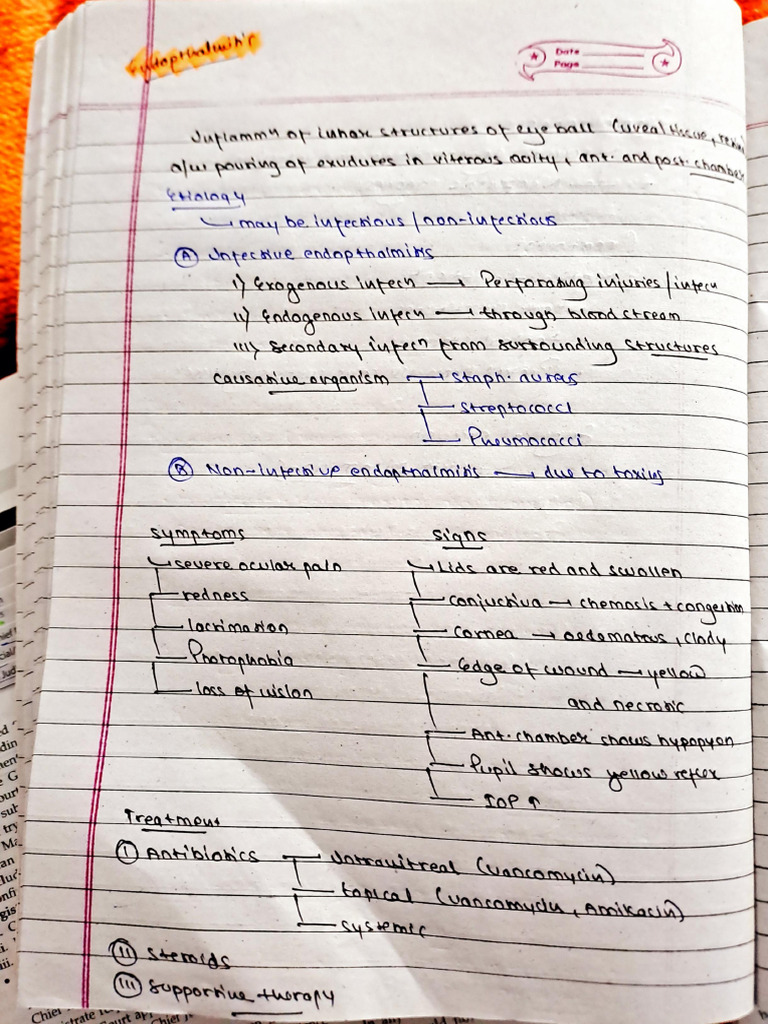 Endopthalmitis
Date
Page
Inflammn of innar structures of eye ball (uveal tissue, retina
a/w pouring of exudates in viterous cavity, ant. and post. chamber
Etiology
may be infectious / non-infectious
Ⓐ Infective endopthalmitis
i) Exogenous infecn → Perforating injuries / infecn
ii) Endogenous infecn → through blood stream
iii) Secondary infecn from surrounding structures
causative organism → staph. aureas
streptococci
Pneumococci
Ⓑ Non-infective endopthalmitis → due to toxins
Symptoms Signs
severe ocular pain Lids are red and swollen
redness conjuctiva → chemosis + congestion
lacrimation cornea → oedematous, clody
Photophobia Edge of wound → yellow
loss of vision and necrotic
Ant. chamber shows hypopyon
Pupil shows yellow reflex
IOP ↑
Treatment
Ⓘ Antibiotics Intravitreal (vancomycin)
topical (vancomycin, Amikacin)
systemic
ⓘⓘ Steroids
ⓘⓘⓘ Supportive therapy